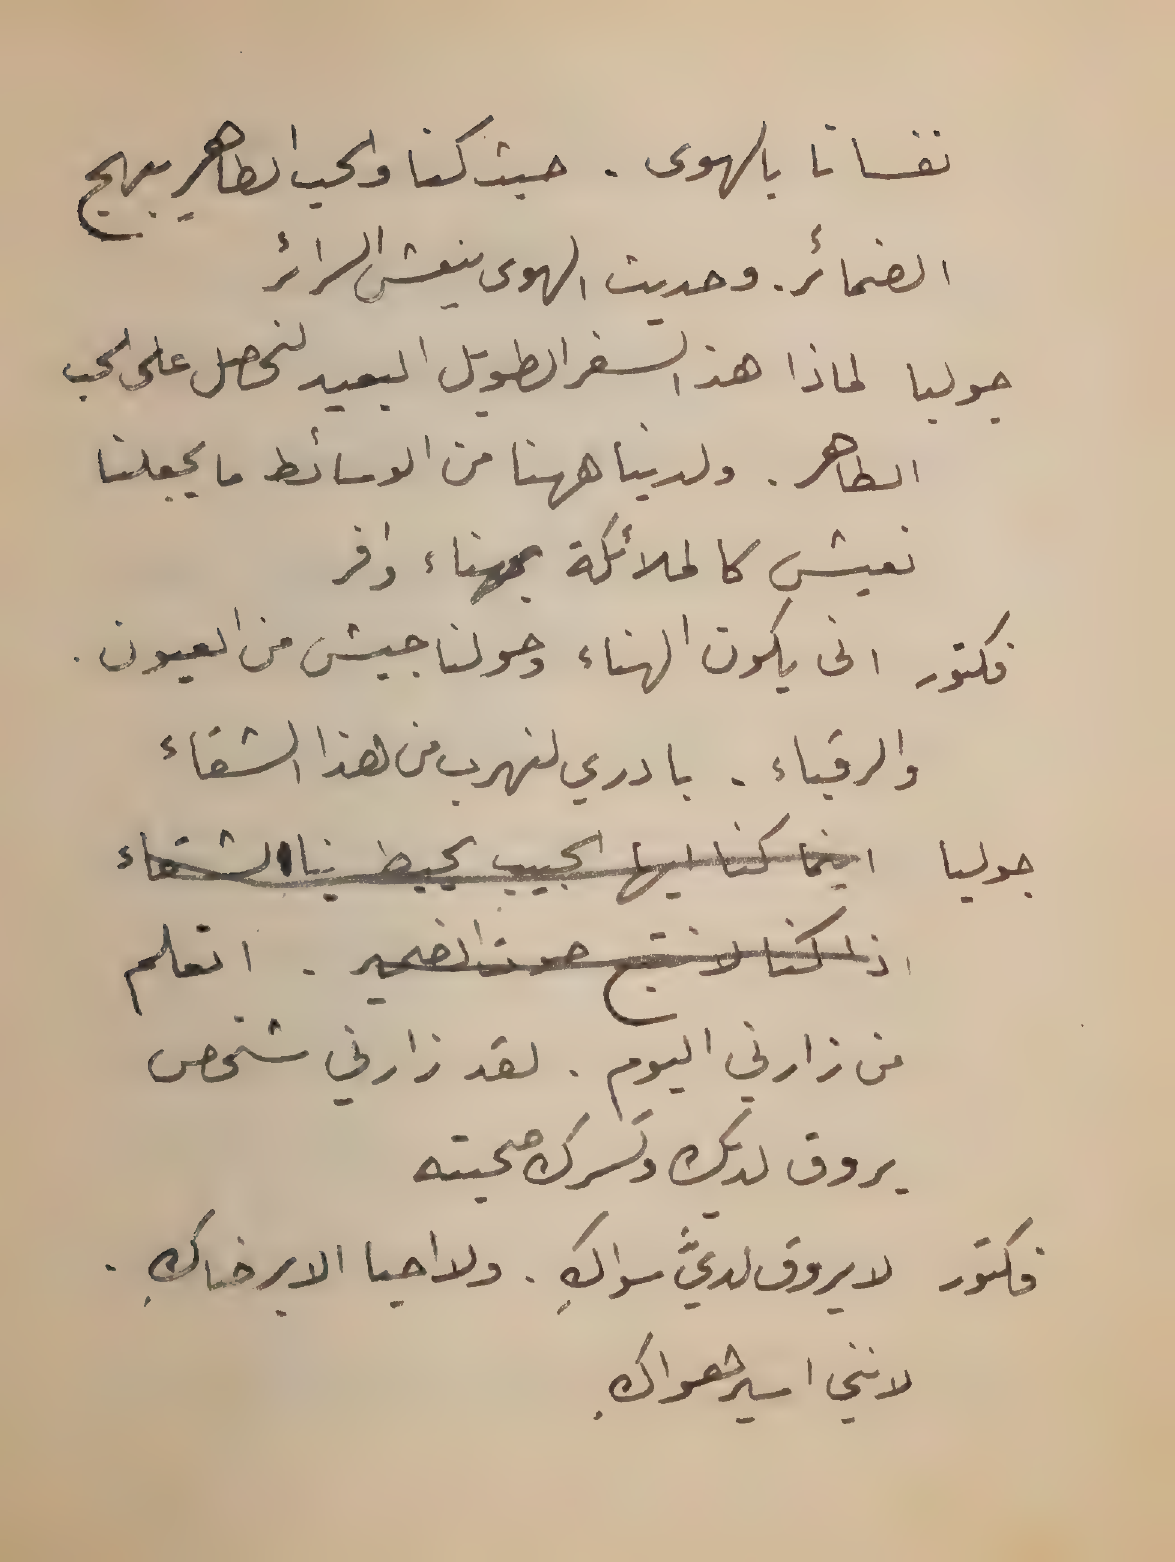 نفسانا بالهوى . حيث كنا والحب الطاهر يبهج
الضمائر . وحديث الهوى ينعش السرائر
جوليا لماذا هذا السفر الطويل البعيد لنحصل على الحب
الطاهر . ولدينا ههنا من الوسائط ما يجعلنا
نعيش كالملائكة بهناء وافر
فكتور انى يكون الهناء وحولنا جيش من العيون .
والرقباء . بادري لنهرب من هذا الشقاء
جوليا اينما كنا ايها الحبيب يحيط بنا الشقاء
اذا كنا لا نتبع صوت الضمير . اتعلم
من زارني اليوم . لقد زارني شخص
يروق لديك وتسرك صحبته
فكتور لا يروق لديَّ سواكِ . ولا احيا الا برضاكِ .
لانني اسير هواكِ